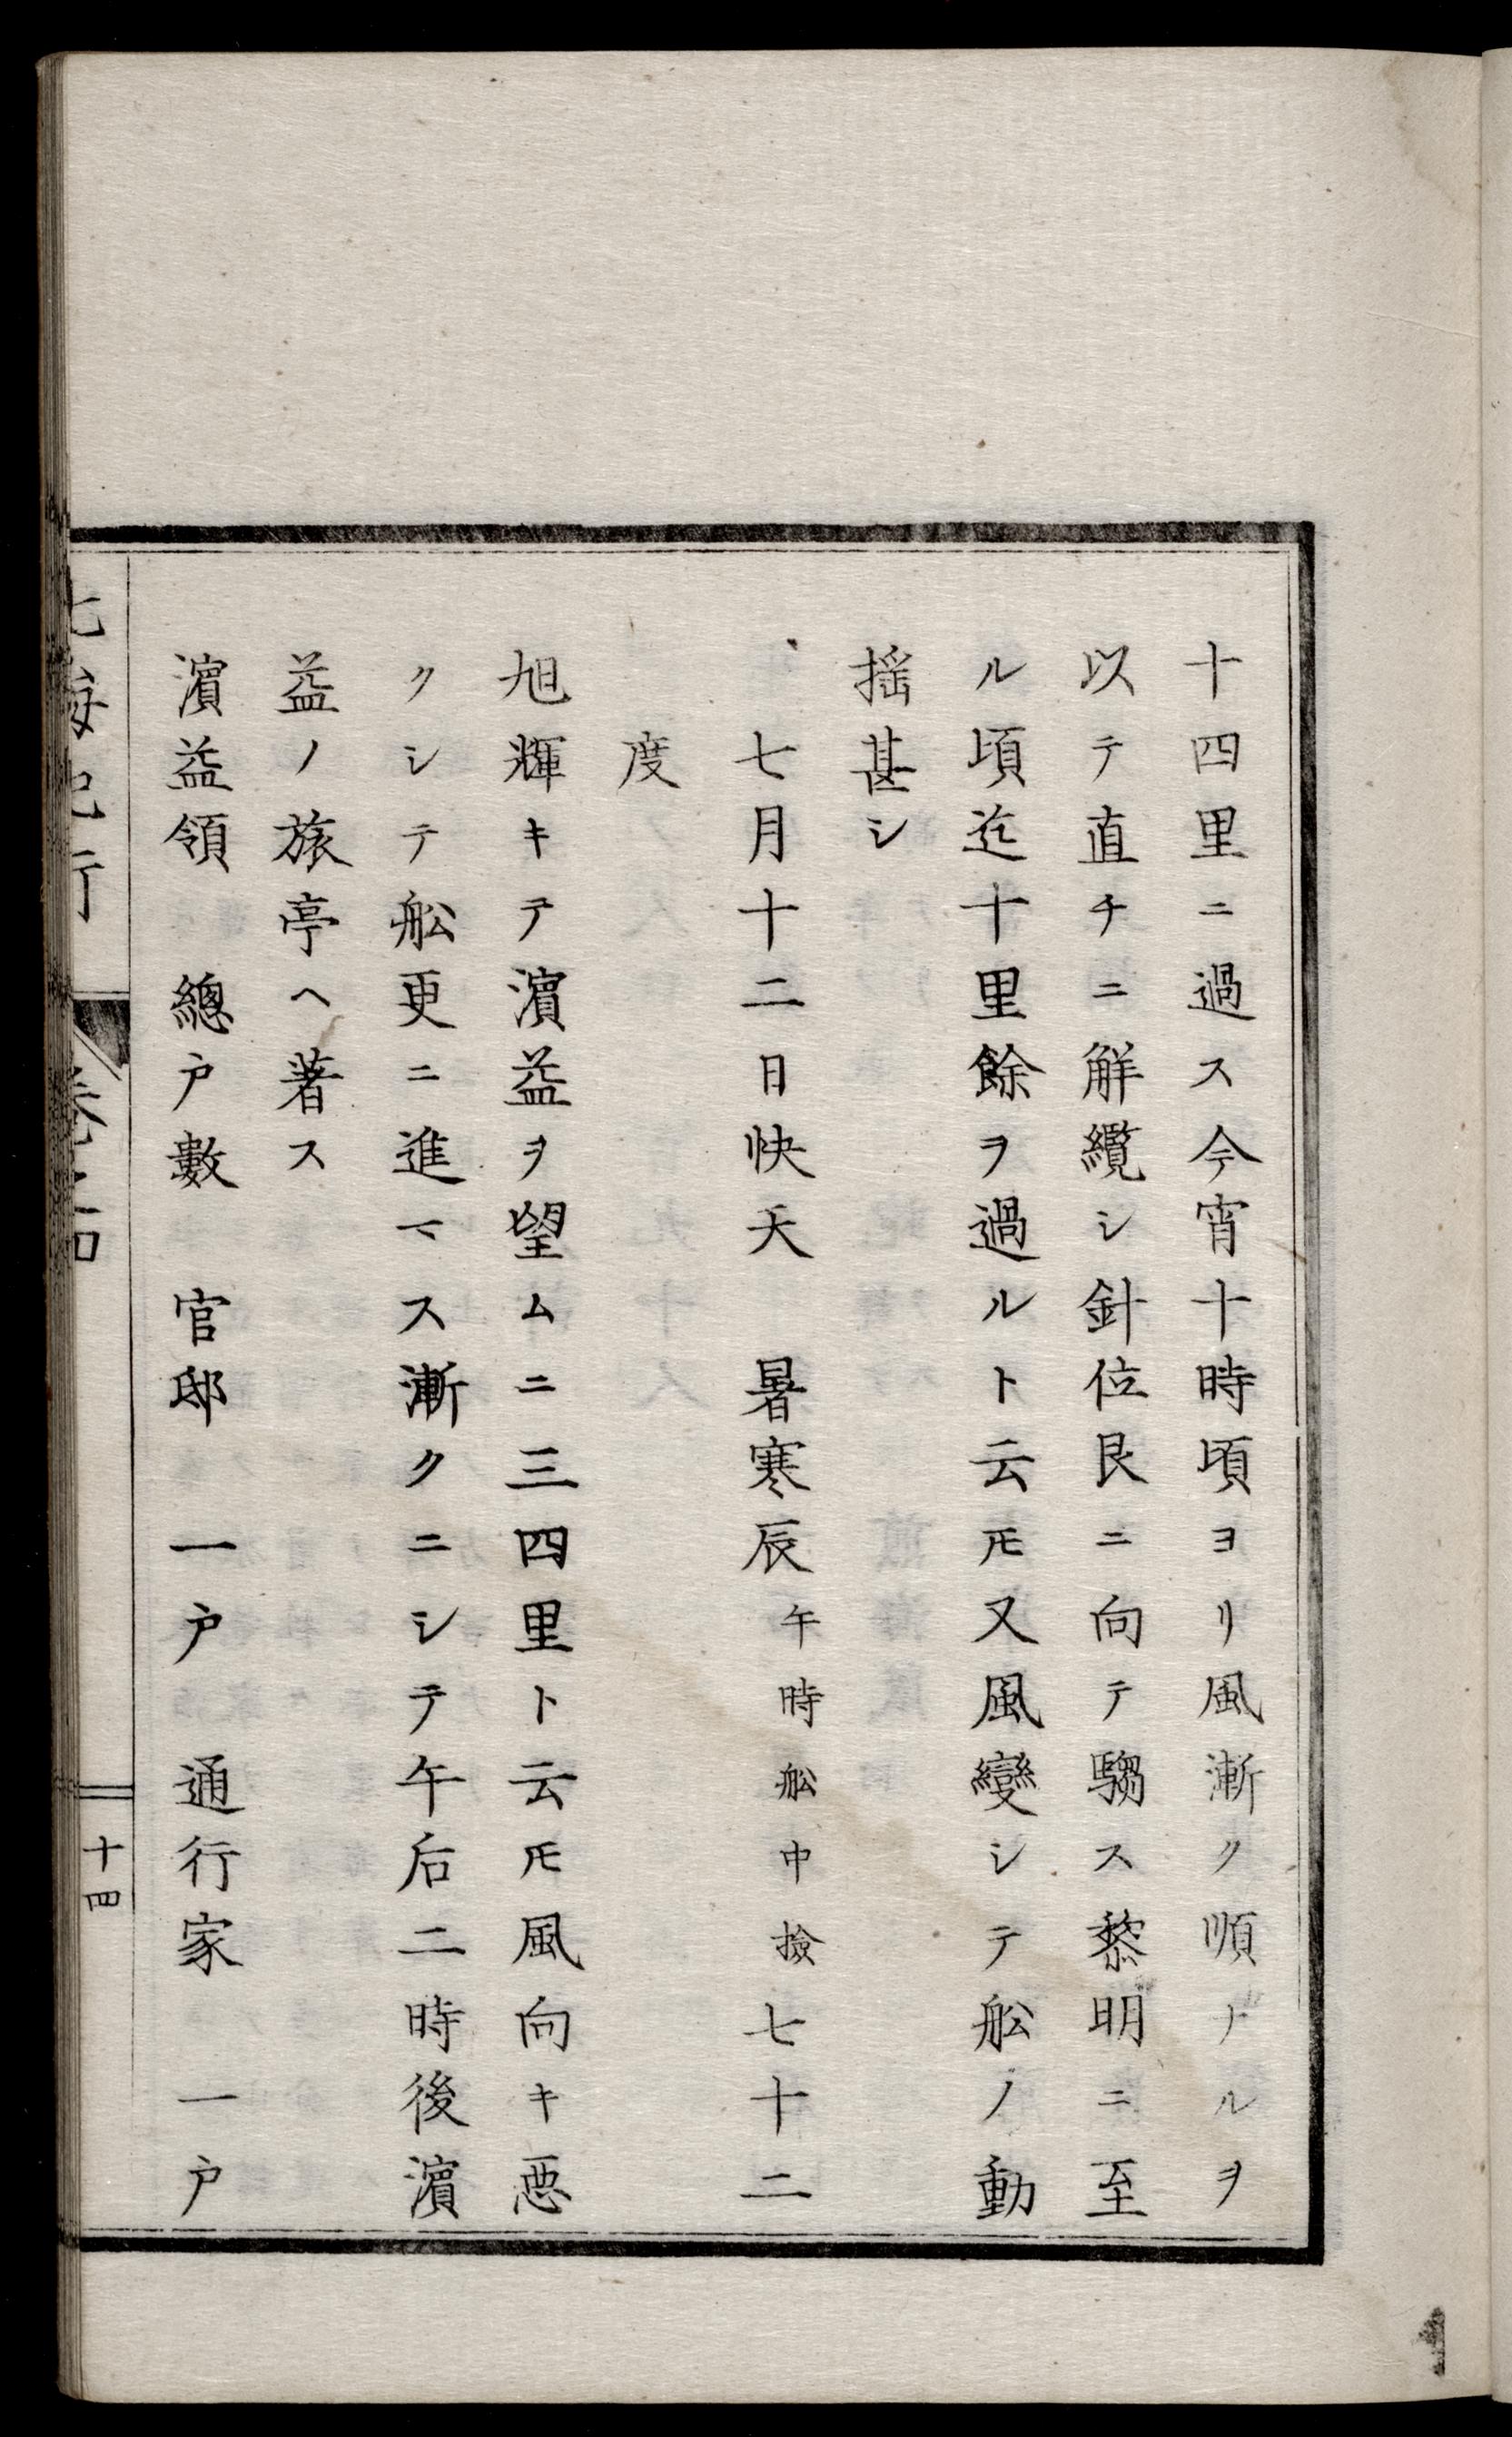 十四里ニ過ス今宵十時頃ヨリ風漸ク順ナルヲ
以テ直チニ解纜シ針位艮ニ向テ騶ス黎明ニ至
ル頃迄十里餘ヲ過ルト云𪜈又風變シテ舩ノ動
揺甚シ
七月十二日快天　暑寒辰午時舩中撿七十二
度
旭輝キテ濵益ヲ望ムニ三四里ト云𪜈風向キ悪
クシテ舩更ニ進マス漸クニシテ午后二時後濵
益ノ旅亭ヘ著ス
濵益領　總戸數　官邸　一戸　通行家　一戸
十四